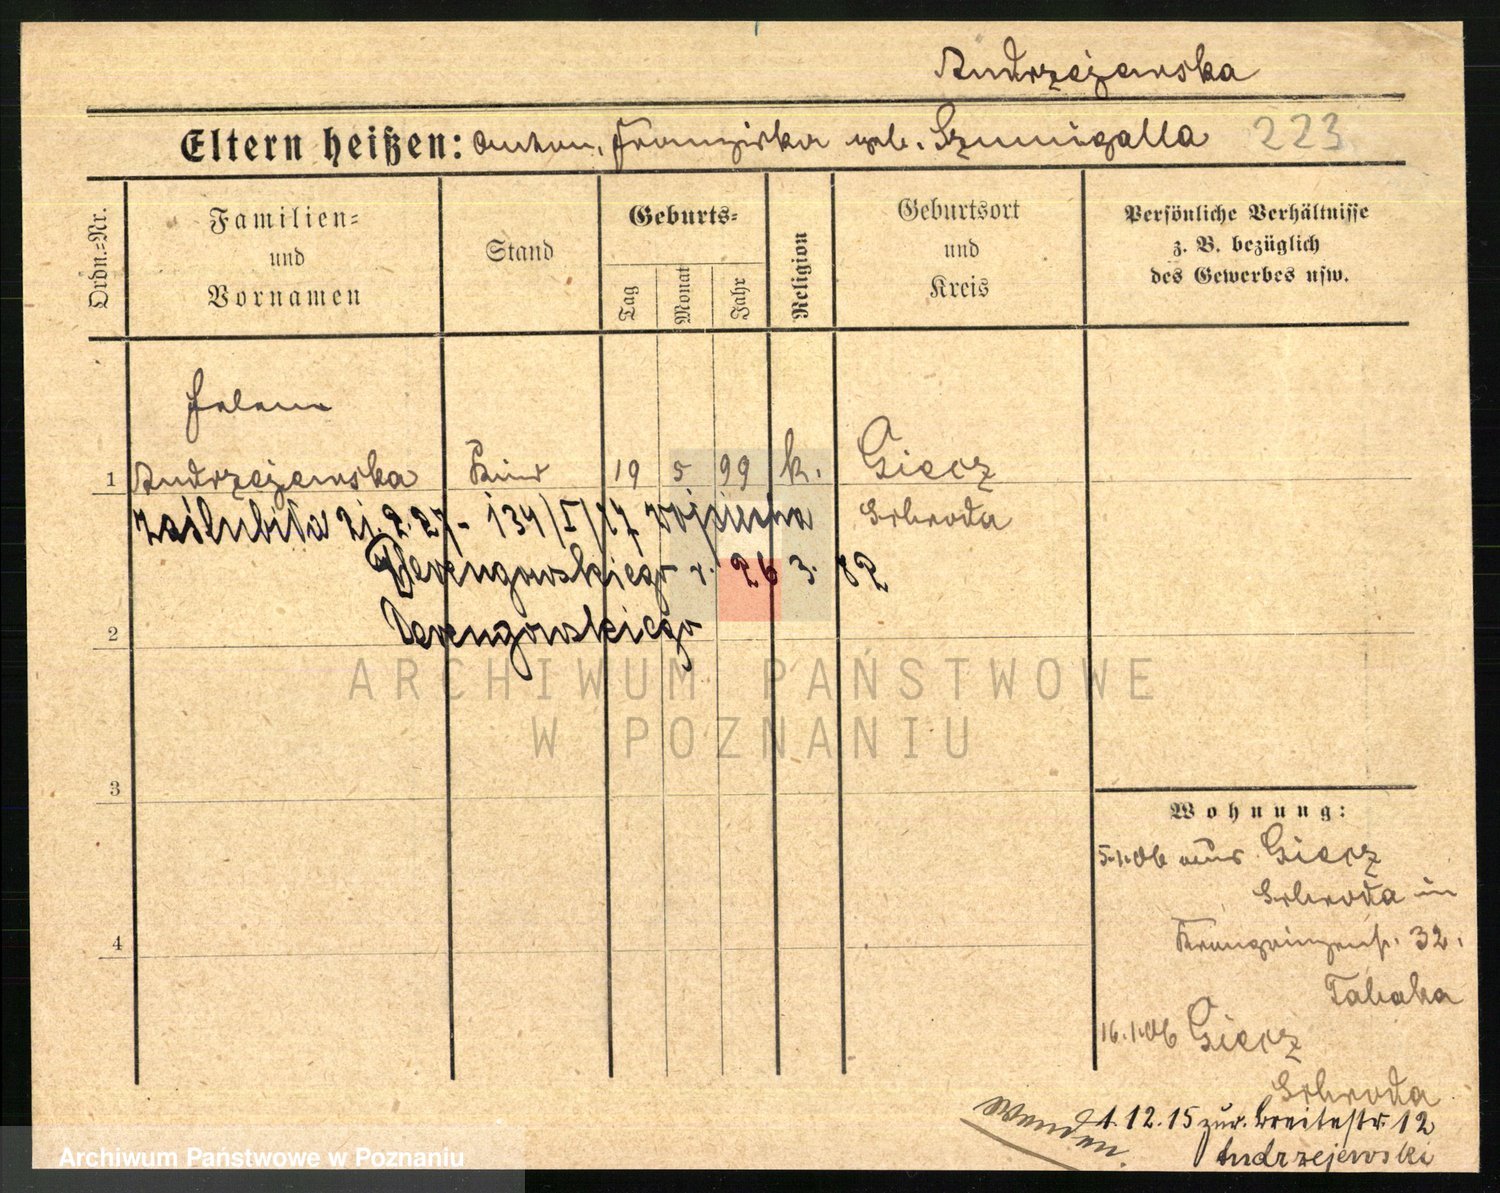 Andrzejewska
Eltern heißen: Anton, Franziska geb. Szmigalla 223
Ordn.-Nr.
Familien-
und
Vornamen
Stand
Geburts-
Tag
Monat
Jahr
Religion
Geburtsort
und
Kreis
Persönliche Verhältnisse
z. B. bezüglich
des Gewerbes usw.
Helene
1 Andrzejewska Kind 19 5 99 k. Giecz
Schroda
zaślubiła 21.2.27 - 134/I/27 Wojciecha
Derengowskiego r. 26 3. 82
Derengowskiego
2
3
4
ARCHIWUM PAŃSTWOWE
W POZNANIU
Wohnung:
5.1.06 aus Giecz
Schroda in
Kronprinzenstr. 32.
Tabaka
16.1.06 Giecz
Schroda
Wenden.
1.12.15 zur. Breitestr. 12
Andrzejewski
Archiwum Państwowe w Poznaniu